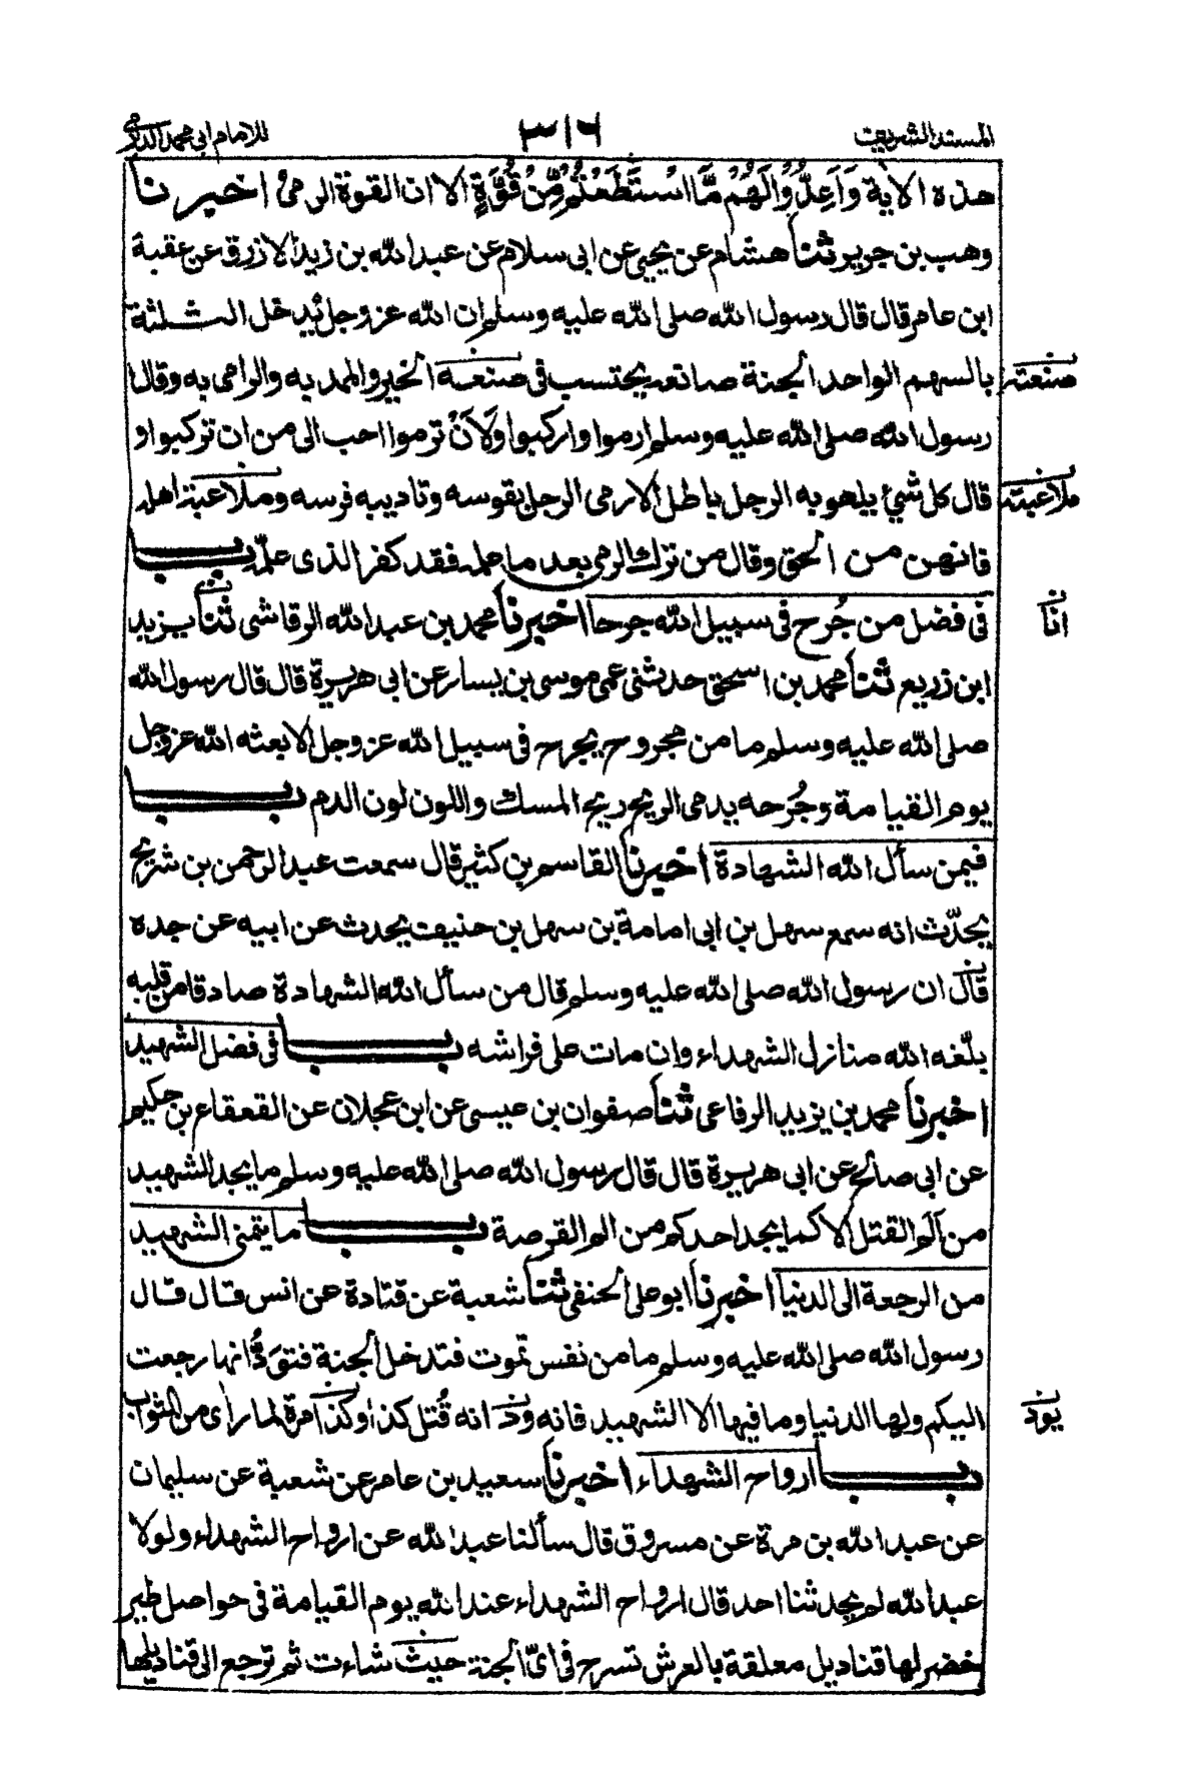 المسند الشريف ٣١٦ للامام ابى محمد الدارمى
هذه الاية وَاَعِدُّوْا لَهُمْ مَّا اسْتَطَعْتُمْ مِّنْ قُوَّةٍ الا ان القوة الرمى اخبرنا
وهب بن جرير ثنا هشام عن يحيى عن ابى سلام عن عبد الله بن زيد الازرق عن عقبة
ابن عامر قال قال رسول الله صلى الله عليه وسلم ان الله عز وجل يُدخل الثلثة
بالسهم الواحد الجنة صانعه يحتسب فى صنعه الخير والممد به والرامى به وقال
صنعته
رسول الله صلى الله عليه وسلم ارموا واركبوا ولَاَنْ ترموا احب الى من ان تركبوا و
قال كل شئ يلهو به الرجل باطل الا رمى الرجل بقوسه وتاديبه فرسه وملاعبة اهله
ملاعبته
فانهن من الحق وقال من ترك الرمى بعد ما علمه فقد كفر الذى علّمه باب
فى فضل من جُرح فى سبيل الله جرحا اخبرنا محمد بن عبد الله الرقاشى ثنا يزيد
انا
ابن زريع ثنا محمد بن اسحق حدثنى عمى موسى بن يسار عن ابى هريرة قال قال رسول الله
صلى الله عليه وسلم ما من مجروح يجرح فى سبيل الله عز وجل الا بعثه الله عز وجل
يوم القيامة وجُرحه يدمى الريح ريح المسك واللون لون الدم باب
فيمن سأل الله الشهادة اخبرنا القاسم بن كثير قال سمعت عبد الرحمن بن شريح
يحدّث انه سمع سهل بن ابى امامة بن سهل بن حنيف يحدث عن ابيه عن جده
قال ان رسول الله صلى الله عليه وسلم قال من سأل الله الشهادة صادقا من قلبه
بلّغه الله منازل الشهداء وان مات على فراشه باب فى فضل الشهيد
اخبرنا محمد بن يزيد الرفاعى ثنا صفوان بن عيسى عن ابن عجلان عن القعقاع بن حكيم
عن ابى صالح عن ابى هريرة قال قال رسول الله صلى الله عليه وسلم ما يجد الشهيد
من اَلَم القتل الا كما يجد احدكم من الم القرصة باب ما يتمنى الشهيد
من الرجعة الى الدنيا اخبرنا ابو على الحنفى ثنا شعبة عن قتادة عن انس قال قال
رسول الله صلى الله عليه وسلم ما من نفس تموت فتدخل الجنة فتَوَدُّ انها رجعت
اليكم ولها الدنيا وما فيها الا الشهيد فانه ودّ انه قُتل كذا وكذا مرة لما رأى من الثواب
يودّ
باب ارواح الشهداء اخبرنا سعيد بن عامر عن شعبة عن سليمان
عن عبد الله بن مرة عن مسروق قال سألنا عبد الله عن ارواح الشهداء ولولا
عبد الله لم يحدثنا احد قال ارواح الشهداء عند الله يوم القيامة فى حواصل طير
خضر لها قناديل معلقة بالعرش تسرح فى اىّ الجنة حيث شاءت ثم ترجع الى قناديلها